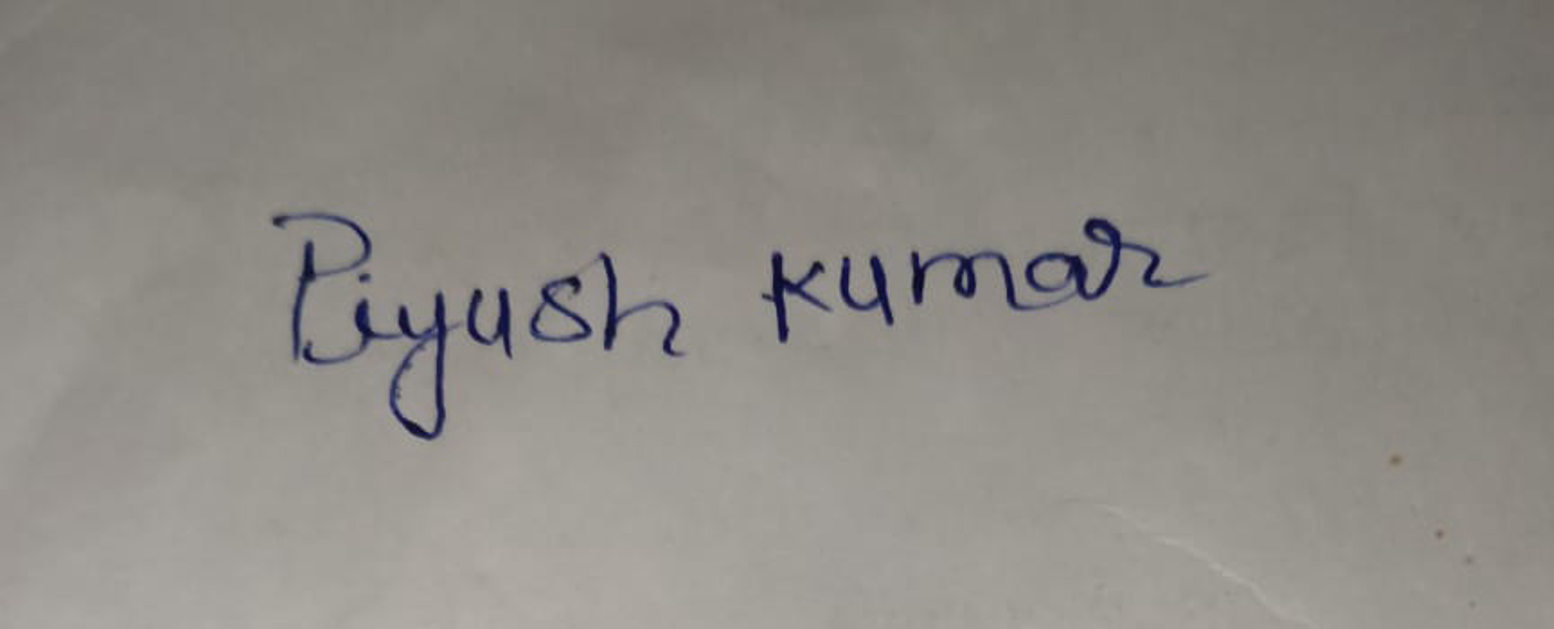 Piyush Kumar